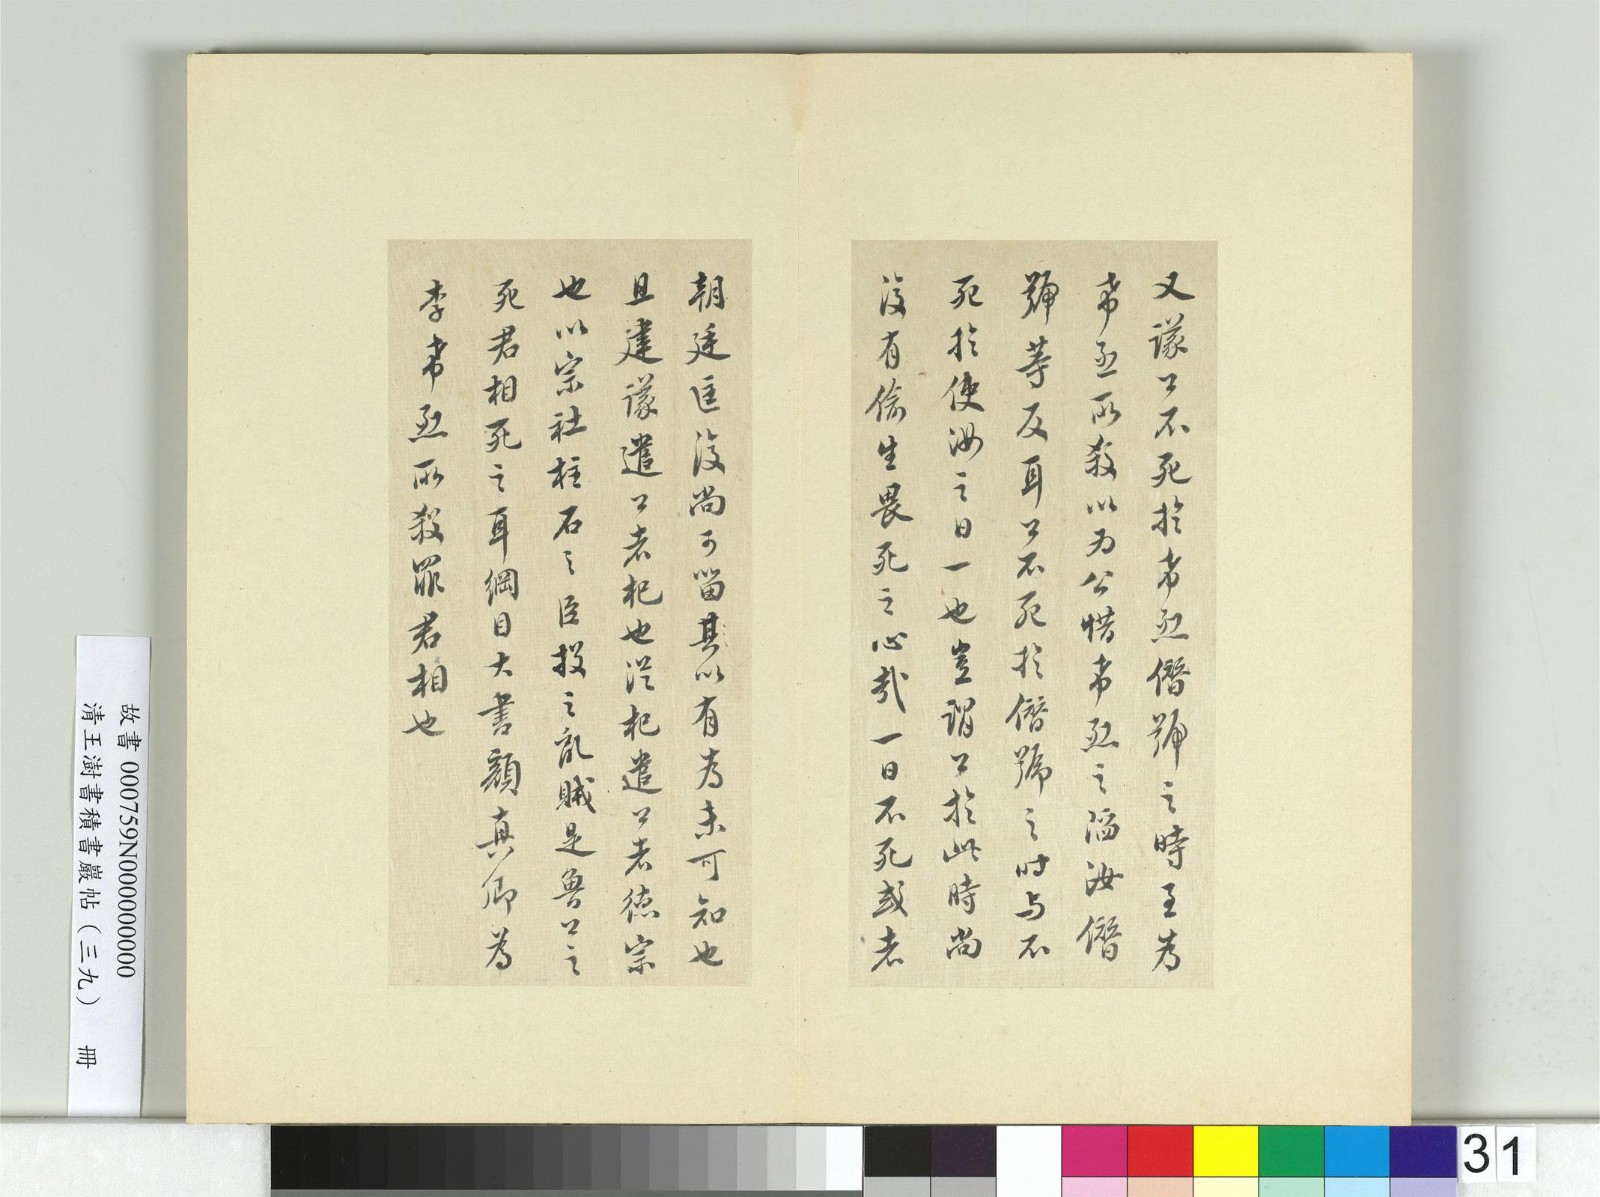 又議公不死於希烈僭號之時至為
希烈所殺以為公惜希烈之陷汝僭
號等反耳公不死於僭號之时与不
死於使汝之日一也豈謂公於此時尚
復有偷生畏死之心哉一日不死或者
朝廷匡復尚可留其以有為未可知也
且建議遣公者杞也從杞遣公者德宗
也以宗社柱石之臣投之亂賊是魯公之
死君相死之耳綱目大書顏真卿為
李希烈所殺罪君相也
故書 000759N000000000
清王澍書積書巖帖(三九) 冊
31